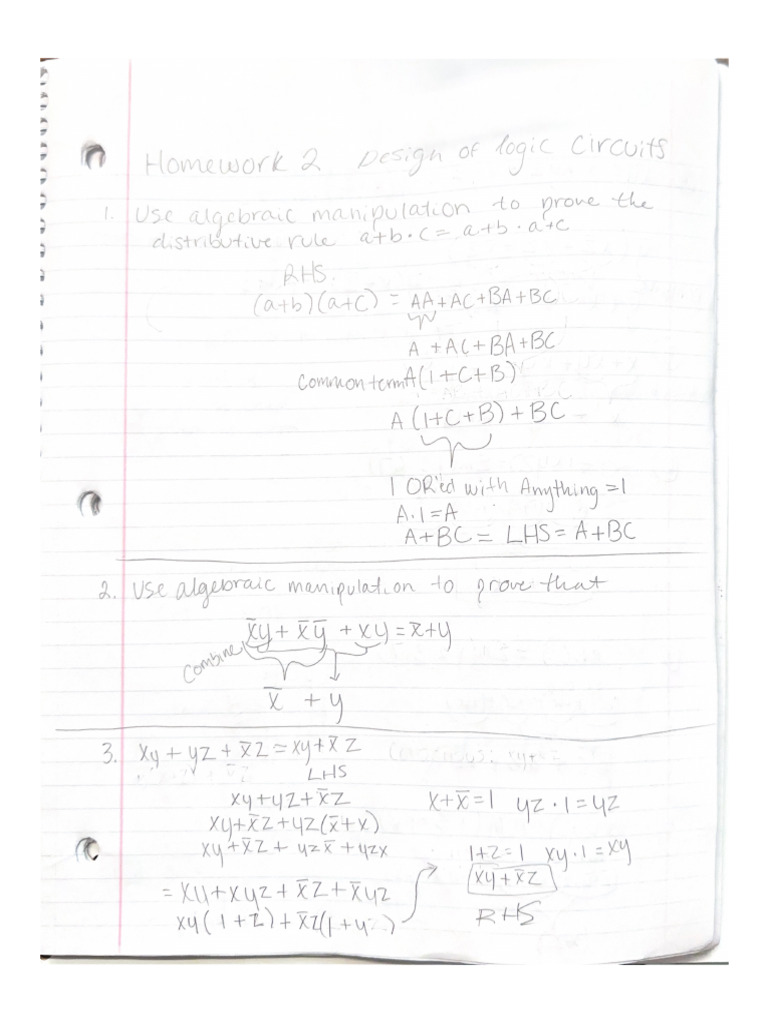 Homework 2 Design of logic Circuits
1. Use algebraic manipulation to prove the
distributive rule a+b·c = a+b · a+c
RHS.
(a+b)(a+c) = AA+AC+BA+BC
A +AC+BA+BC
Common term A(1+C+B)
A (1+C+B) + BC
1 OR'ed with Anything =1
A·1=A
A+BC = LHS = A+BC
2. Use algebraic manipulation to prove that
x̄y + x̄ȳ + xy = x̄+y
Combine
x̄ + y
3. xy + yz + x̄z = xy+x̄z
LHS
xy+yz+x̄z
xy+x̄z+yz(x̄+x)
xy+x̄z+yzx̄+yzx
= xy+xyz+x̄z+x̄yz
xy(1+z)+x̄z(1+y)
x+x̄=1 yz·1=yz
1+z=1 xy·1=xy
xy+x̄z
RHS